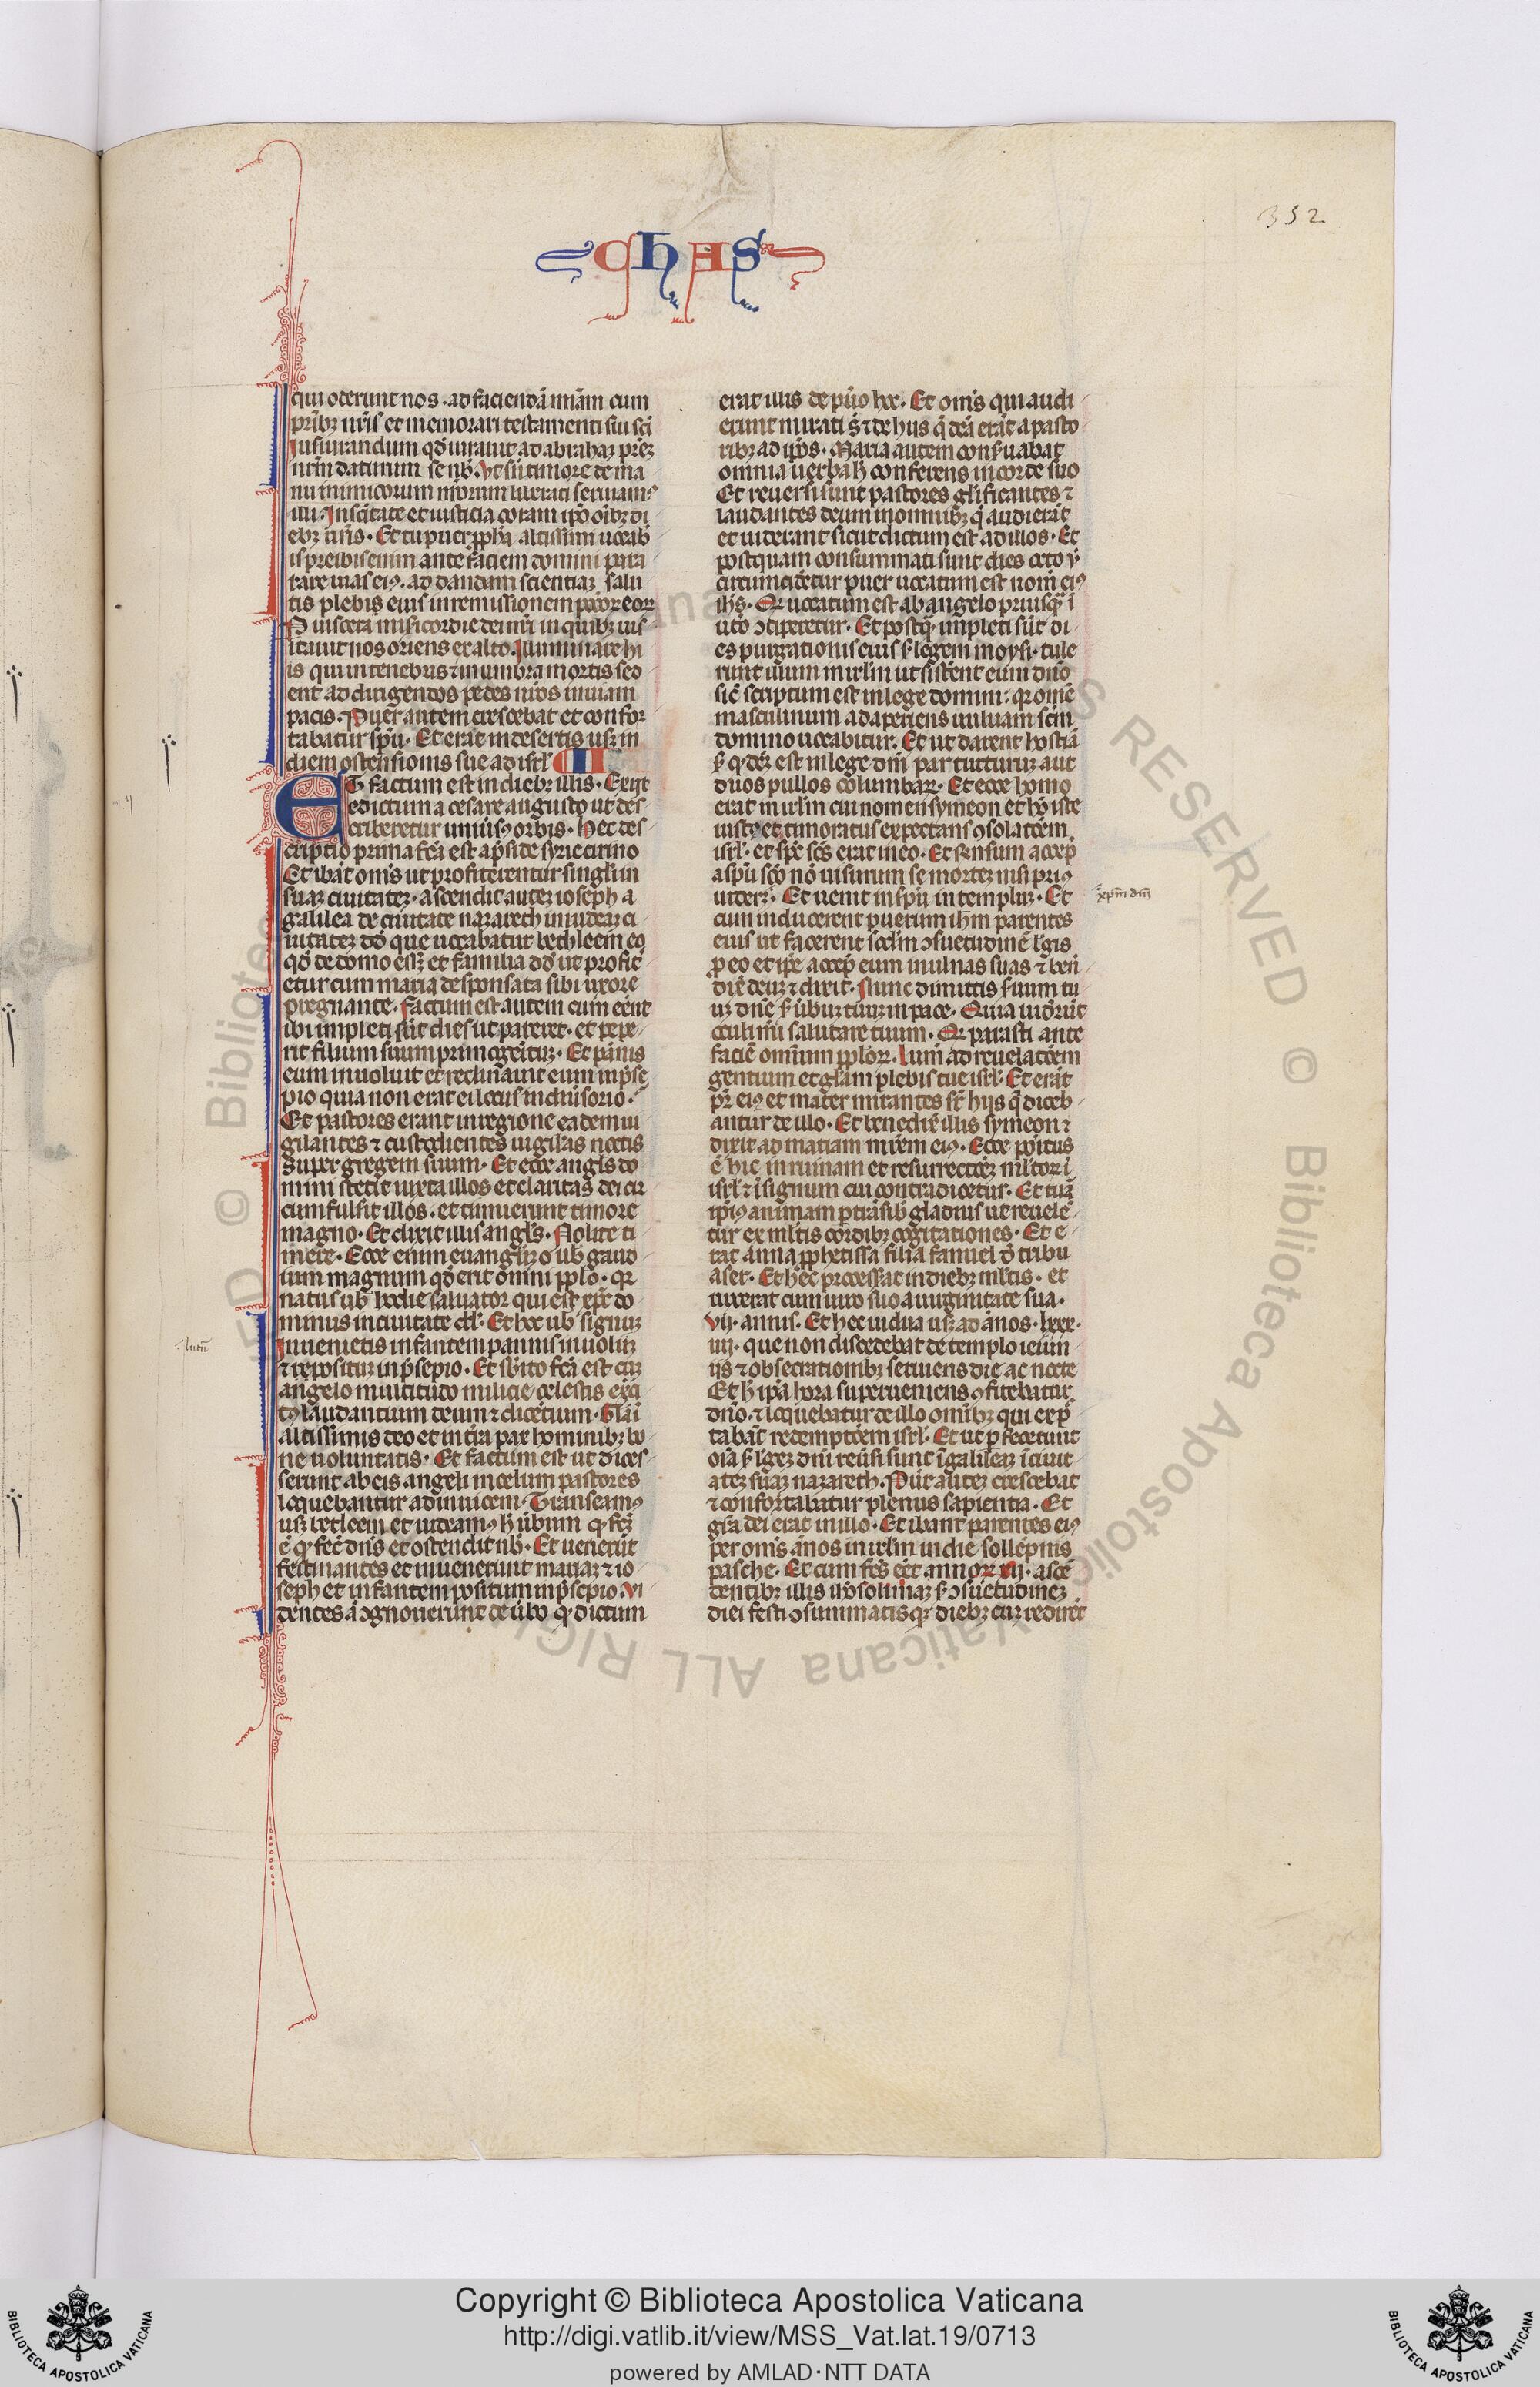 352
CHAS
qui oderunt nos · ad faciendā miā̄m cum
prībȝ nr̄is et memorari testamenti sui sci
Iusiurandum qđ iurauit ad abrahaȝ prēȝ
nrm̄ daturum se nb̄ · Vt sn̄ timore de ma
nu inimicorum nrōrum liberati seruiamꝰ
illi · In scītate et iusticia coram ip̄o oībȝ di
ebȝ nr̄is · Et tu puer ꝓph̄a altissimi uocab
is preibis enim ante faciem domini para
rare uias eiꝰ · ad dandam scientiaȝ salu
tis plebis eius in remissionem pccōꝝ eoꝝ
P uiscera misericordie dei nr̄i in quibȝ uis
itauit nos oriens ex alto · Illuminare hi
is qui in tenebris ⁊ in umbra mortis sed
ent ad dirigendos pedes nr̄os in uiam
pacis · Puer autem crescebat et confor
tabatur sp̄u · Et erat in desertis usȝ in
diem ostensionis sue ad isrl̄ II
ET factum est in diebȝ illis · Exijt
edictum a cesare augusto ut des
criberetur uniuisꝰ orbis · Hec des
criptio prima fcā est ap̄side syrie cirino
Et ibāt om̄s ut profiterentur singl̄i in
suaȝ ciuitateȝ · ascendit auteȝ ioseph a
galilea de ciuitate nazareth in iudeaȝ ci
uitateȝ dđ que uocabatur bethleem eo
qđ de domo essȝ et familia dđ ut profit
etur cum maria desponsata sibi uxore
pregnante · Factum est autem cum eēnt
ibi impleti sūt dies ut pareret · et pepe
rit filium suum primogenituȝ · Et pānis
eum inuoluit et reclinauit eum in p̄se
pio quia non erat ei locus in diuīsorio ·
Et pastores erant in regione eadem ui
gilantes ⁊ custodientes uigilias noctis
super gregem suum · Et ecce angl̄s do
mini stetit iuxta illos et claritas dei cir
cumfulsit illos · et timuerunt timore
magno · Et dixit illis angl̄s · Nolite ti
mere · Ecce enim euangliȝo ub̄ gaud
ium magnum qđ erit om̄ni ꝓpl̄o · qꝛ
natus ub̄ hodie saluator qui est xp̄c do
minus in ciuitate dđ · Et hoc ub̄ signuȝ
Inuenietis infantem pannis inuolutȝ
⁊ repositȝ in p̄sepio · Et sbito fcā est cuȝ
angelo multitudo milicie celestis exci
tꝰ laudantium deum ⁊ dicētium · Glāi
altissimis deo et in tr̄a pax hominibȝ bo
ne uoluntatis · Et factum est ut disces
serunt ab eis angeli in celum pastores
loquebantur ad inuicem · Transeamꝰ
usȝ betleem et uideamꝰ h̄ ūbum q fcȝ
ē q fec̄ dn̄s et ostendit nb̄ · Et uenerūt
festinantes et inuenerunt mariaȝ ⁊ io
seph et infantem positum in p̄sepio · Vi
dentes ā ↄgnouerunt de ūbo q dictum
erat illis de pūo hoc · Et om̄s qui audi
erunt mirati s̄t ⁊ de hijs q̄ dcā erāt a pasto
ribȝ ad ip̄os · Maria autem conſuabat
omnia uerba h̄ conferens in corde suo
Et reuersi sunt pastores gl̄ificantes ⁊
laudantes deum in omnibȝ q̄ audierāt
et uiderant sicut dictum est ad illos · Et
postquam consummati sunt dies octo ỹ
circumcidetur puer uocatum est nom̄ eiꝰ
ih̄s · Qꝛ uocatum est ab angelo priusq̄ ī
utō ↄciperetur · Et postq̄ impleti sūt di
es purgationis eius ſ legem moysi · tule
runt illum in irl̄m ut sisterent eum dn̄o
sic̄ scriptum est in lege domini : qꝛ om̄ē
masculinum adaperiens uuluam scm̄
domino uocabitur · Et ut darent hostiā
ſ q dcȝ est in lege dn̄i par turturuȝ aut
duos pullos columbaꝝ · Et ecce homo
erat in irl̄m cui nomen symeon et hō iste
iustꝰ et timoratus expectans ↄsolatōem
isrl̄ · et sp̄c scs̄ erat in eo · Et rn̄sum accep̄
a sp̄u scō nō uisurum se morteȝ nisi priꝰ
uiderȝ · Et uenit in sp̄u in templuȝ · Et
cum inducerent puerum ih̄m parentes
eius ut facerent scdm̄ ↄsuetudinē legis
ꝓ eo et ip̄e accep̄ eum in ulnas suas ⁊ ben̄
dix̄ deuȝ ⁊ dixit · Nunc dimittis ſuum tu
uȝ dn̄e ſ ūbuȝ tuuȝ in pace · Quia uid̄rūt
oculi mī salutare tuum · Qꝛ parasti ante
faciē omnium ꝓpl̄oꝝ · lum̄ ad reuelatōem
gentium et glāam plebis tue isrl̄ · Et erāt
pr̄ eiꝰ et mater mirantes sr̄ hijs q̄ diceb
antur de illo · Et benedix̄ illis symeon ⁊
dixit ad mariam mr̄em eiꝰ · Ecce positus
ē hic in ruinam et resurrectōȝ ml̄toꝝ ī
isrl̄ ⁊ ī signum cui contradicetur · Et tuā
ip̄iꝰ animam ꝑtrāsib̄ gladius ut reuele
tur ex ml̄tis cordibȝ cogitationes · Et e
rat anna ꝓphetissa filia fanuel đ tribu
aser · Et hec processerat in diebȝ ml̄tis · et
uixerat cum uiro suo a uirginitate sua ·
vij · annis · Et hec uidua usȝ ad ānos · lxxx ·
iiij · que non discedebat de templo ieiun
ijs ⁊ obsecrationibȝ seruiens die ac nocte
Et h̄ ip̄a hora superueniens ꝯfitebatur
dn̄o · ⁊ loquebatur de illo om̄ibȝ qui exp̄
tabāt redemptōem isrl̄ · Et ut ꝑfecerunt
oīa ſ legeȝ dn̄i reūsi sunt ī galileaȝ ī ciuit
ateȝ suaȝ nazareth · Puer auteȝ crescebat
⁊ confortabatur plenus sapientia · Et
grā dei erat in illo · Et ibant parentes eiꝰ
per om̄s ānos in irl̄m in die sollēpnis
pasche · Et cum fcs̄ eēt annoꝝ xij · ascē
dentibȝ illis iherosolimaȝ ſ ↄsuetudineȝ
diei festi ↄsummatisqꝛ diebȝ cuȝ redirēt
xpm̄ dm̄
Copyright © Biblioteca Apostolica Vaticana
http://digi.vatlib.it/view/MSS_Vat.lat.19/0713
powered by AMLAD·NTT DATA
BIBLIOTECA APOSTOLICA VATICANA
BIBLIOTECA APOSTOLICA VATICANA
© Biblioteca Apostolica Vaticana ALL RIGHTS RESERVED